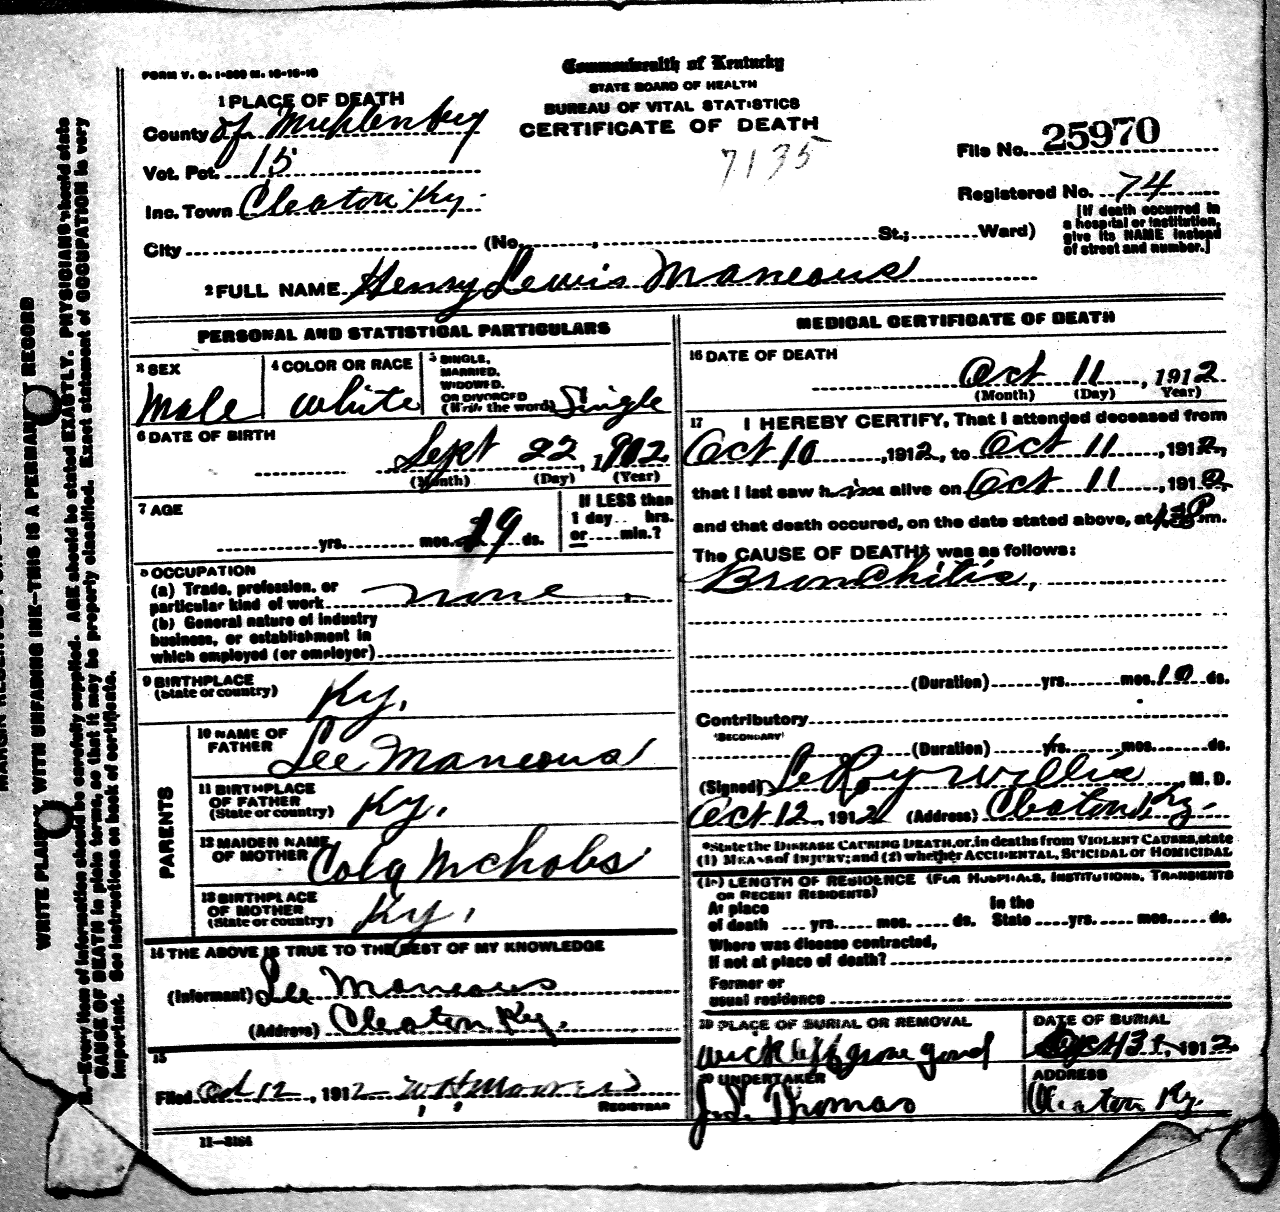 FORM V. S. 1-
Commonwealth of Kentucky
STATE BOARD OF HEALTH
BUREAU OF VITAL STATISTICS
CERTIFICATE OF DEATH
7135
1 PLACE OF DEATH
County of Muhlenberg
Vot. Pct. 15
Inc. Town Cleaton Ky.
City (No. , St.; Ward)
File No. 25970
Registered No. 74
[If death occurred in
a hospital or institution,
give its NAME instead
of street and number.]
2 FULL NAME Henry Lewis Maneous
PERSONAL AND STATISTICAL PARTICULARS
3 SEX
Male
4 COLOR OR RACE
White
5 SINGLE,
MARRIED,
WIDOWED,
OR DIVORCED
(Write the word) Single
6 DATE OF BIRTH
Sept 22, 1912
(Month) (Day) (Year)
7 AGE
yrs. mos. 19 ds.
If LESS than
1 day hrs.
or min.?
8 OCCUPATION
(a) Trade, profession, or
particular kind of work none
(b) General nature of industry
business, or establishment in
which employed (or employer)
9 BIRTHPLACE
(State or country) Ky.
PARENTS
10 NAME OF
FATHER Lee Maneous
11 BIRTHPLACE
OF FATHER
(State or country) Ky.
12 MAIDEN NAME
OF MOTHER Cola Nichols
13 BIRTHPLACE
OF MOTHER
(State or country) Ky.
14 THE ABOVE IS TRUE TO THE BEST OF MY KNOWLEDGE
(Informant) Lee Maneous
(Address) Cleaton Ky.
15
Filed Oct 12, 1912
REGISTRAR
11-
MEDICAL CERTIFICATE OF DEATH
16 DATE OF DEATH
Oct 11, 1912
(Month) (Day) Year)
17 I HEREBY CERTIFY, That I attended deceased from
Oct 10, 1912, to Oct 11, 1912,
that I last saw him alive on Oct 11, 1912,
and that death occured, on the date stated above, at m.
The CAUSE OF DEATH* was as follows:
Bronchitis,
(Duration) yrs. mos. 10 ds.
Contributory
(SECONDARY)
(Duration) yrs. mos. ds.
(Signed) LeRoy Willis, M. D.
Oct 12, 1912 (Address) Cleaton, Ky.
*State the DISEASE CAUSING DEATH, or, in deaths from VIOLENT CAUSES, state
(1) MEANS of INJURY; and (2) whether ACCIDENTAL, SUICIDAL or HOMICIDAL
LENGTH OF RESIDENCE (FOR HOSPITALS, INSTITUTIONS, TRANSIENTS
OR RECENT RESIDENTS)
At place
of death yrs. mos. ds.
In the
State yrs. mos. ds.
Where was disease contracted,
If not at place of death?
Former or
usual residence
19 PLACE OF BURIAL OR REMOVAL
DATE OF BURIAL
1912
20 UNDERTAKER
Thomas
ADDRESS
Cleaton Ky.
WRITE PLAINLY, WITH UNFADING INK--THIS IS A PERMANENT RECORD
B.--Every item of information should be carefully supplied. AGE should be stated EXACTLY. PHYSICIANS should state
CAUSE OF DEATH in plain terms, so that it may be properly classified. Exact statement of OCCUPATION is very
important. See instructions on back of certificate.